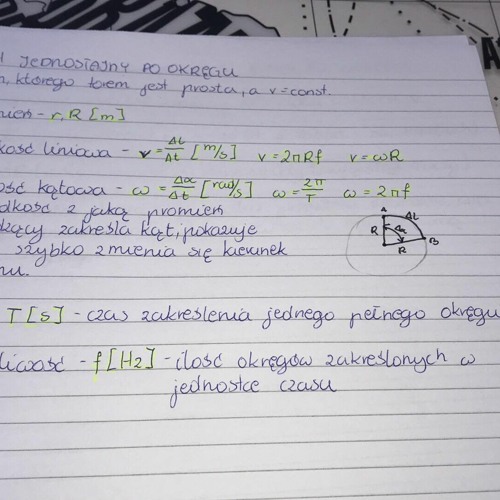 JEDNOSTAJNY PO OKRĘGU
, którego torem jest prosta, a v = const.
mień - r, R [m]
kość liniowa - v = Δl/Δt [m/s] v = 2πRf v = ωR
ość kątowa - ω = Δα/Δt [rad/s] ω = 2π/T ω = 2πf
dkość z jaką promień
zący zakreśla kąt, pokazuje
szybko zmienia się kierunek
nu.
A Δl
R Δα B
R
T [s] - czas zakreślenia jednego pełnego okręgu
liwość - f [Hz] - ilość okręgów zakreślonych w
jednostce czasu